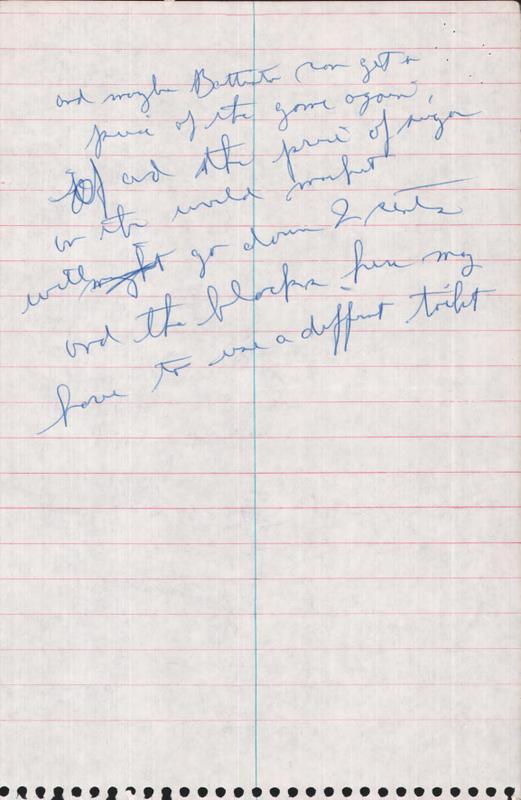 and maybe Battista can get a
piece of the game again,
and the price of sugar
on the world market
will might go down 2 cents
and the blacks here may
have to use a different toilet